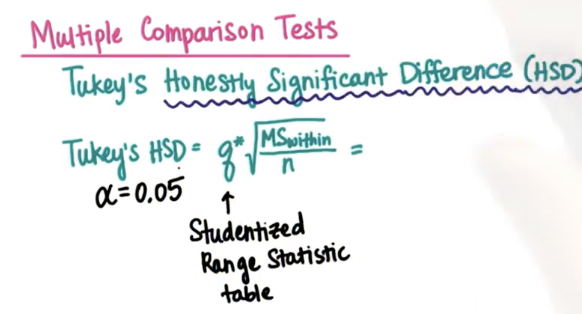 Multiple Comparison Tests
Tukey's Honestly Significant Difference (HSD)
Tukey's HSD = q* √(MSwithin / n) =
α = 0.05
↑
Studentized
Range Statistic
table